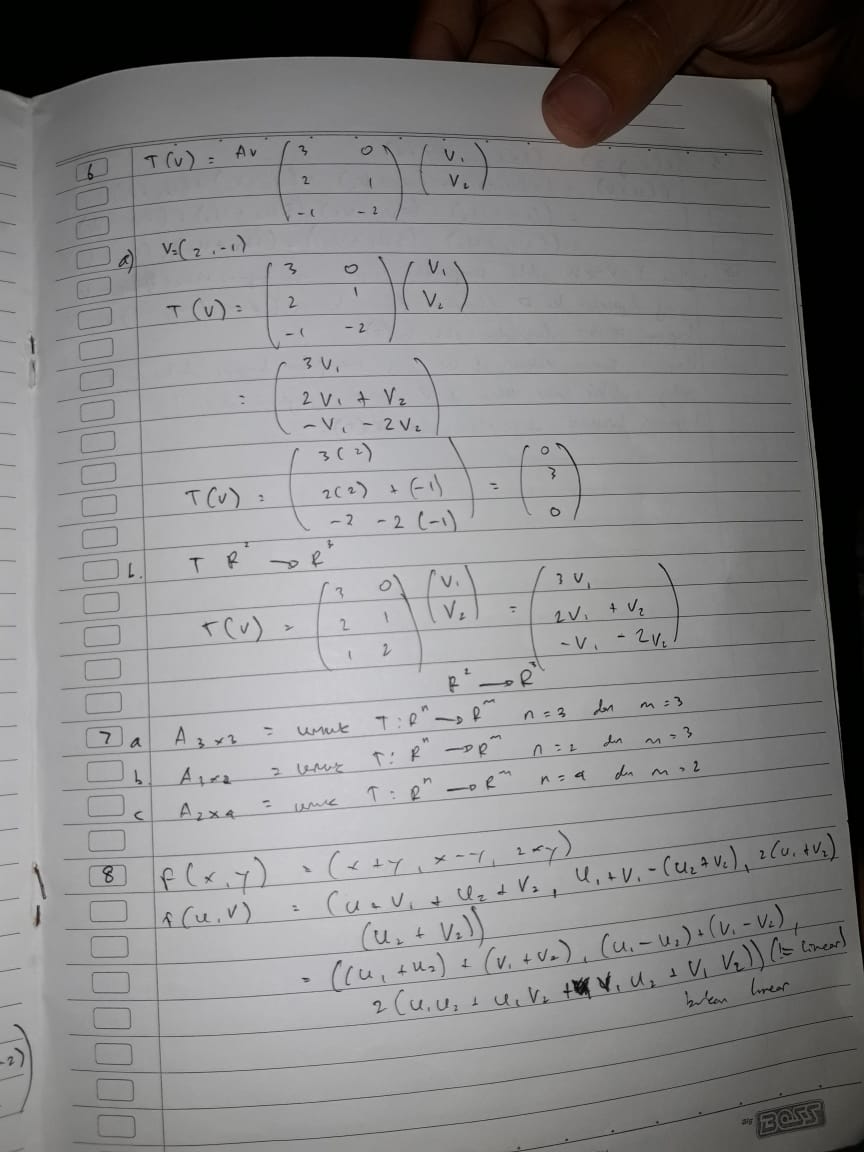 6 T(v) = Av ( 3 0 ) ( V₁ )
( 2 1 ) ( V₂ )
( -1 -2 )
a) V=(2,-1)
T(v) = ( 3 0 ) ( V₁ )
( 2 1 ) ( V₂ )
( -1 -2 )
= ( 3V₁ )
( 2V₁ + V₂ )
( -V₁ - 2V₂ )
T(v) = ( 3(2) ) = ( 0 )
( 2(2) + (-1) ) ( 3 )
( -2 -2(-1) ) ( 0 )
b. T R² → R³
T(v) = ( 3 0 ) ( V₁ ) = ( 3V₁ )
( 2 1 ) ( V₂ ) ( 2V₁ + V₂ )
( 1 2 ) ( -V₁ - 2V₂ )
R² → R³
7 a A₃ₓ₃ = untuk T : Rⁿ → Rᵐ n = 3 dan m = 3
b. = untuk T : Rⁿ → Rᵐ n = 2 dan m = 3
c A₂ₓ₄ = untuk T : Rⁿ → Rᵐ n = 4 dan m = 2
8 f(x,y) = (x+y, x-y, 2xy)
f(u,v) = (u₁ + V₁ + U₂ + V₂, U₁ + V₁ - (U₂ + V₂), 2(U₁ + V₂)
(U₂ + V₂))
= ((U₁ + U₂) + (V₁ + V₂), (U₁ - U₂) + (V₁ - V₂),
2(U₁U₂ + U₁V₂ + V₁U₂ + V₁V₂)) (!= linear)
bukan linear
-2)
BOSS